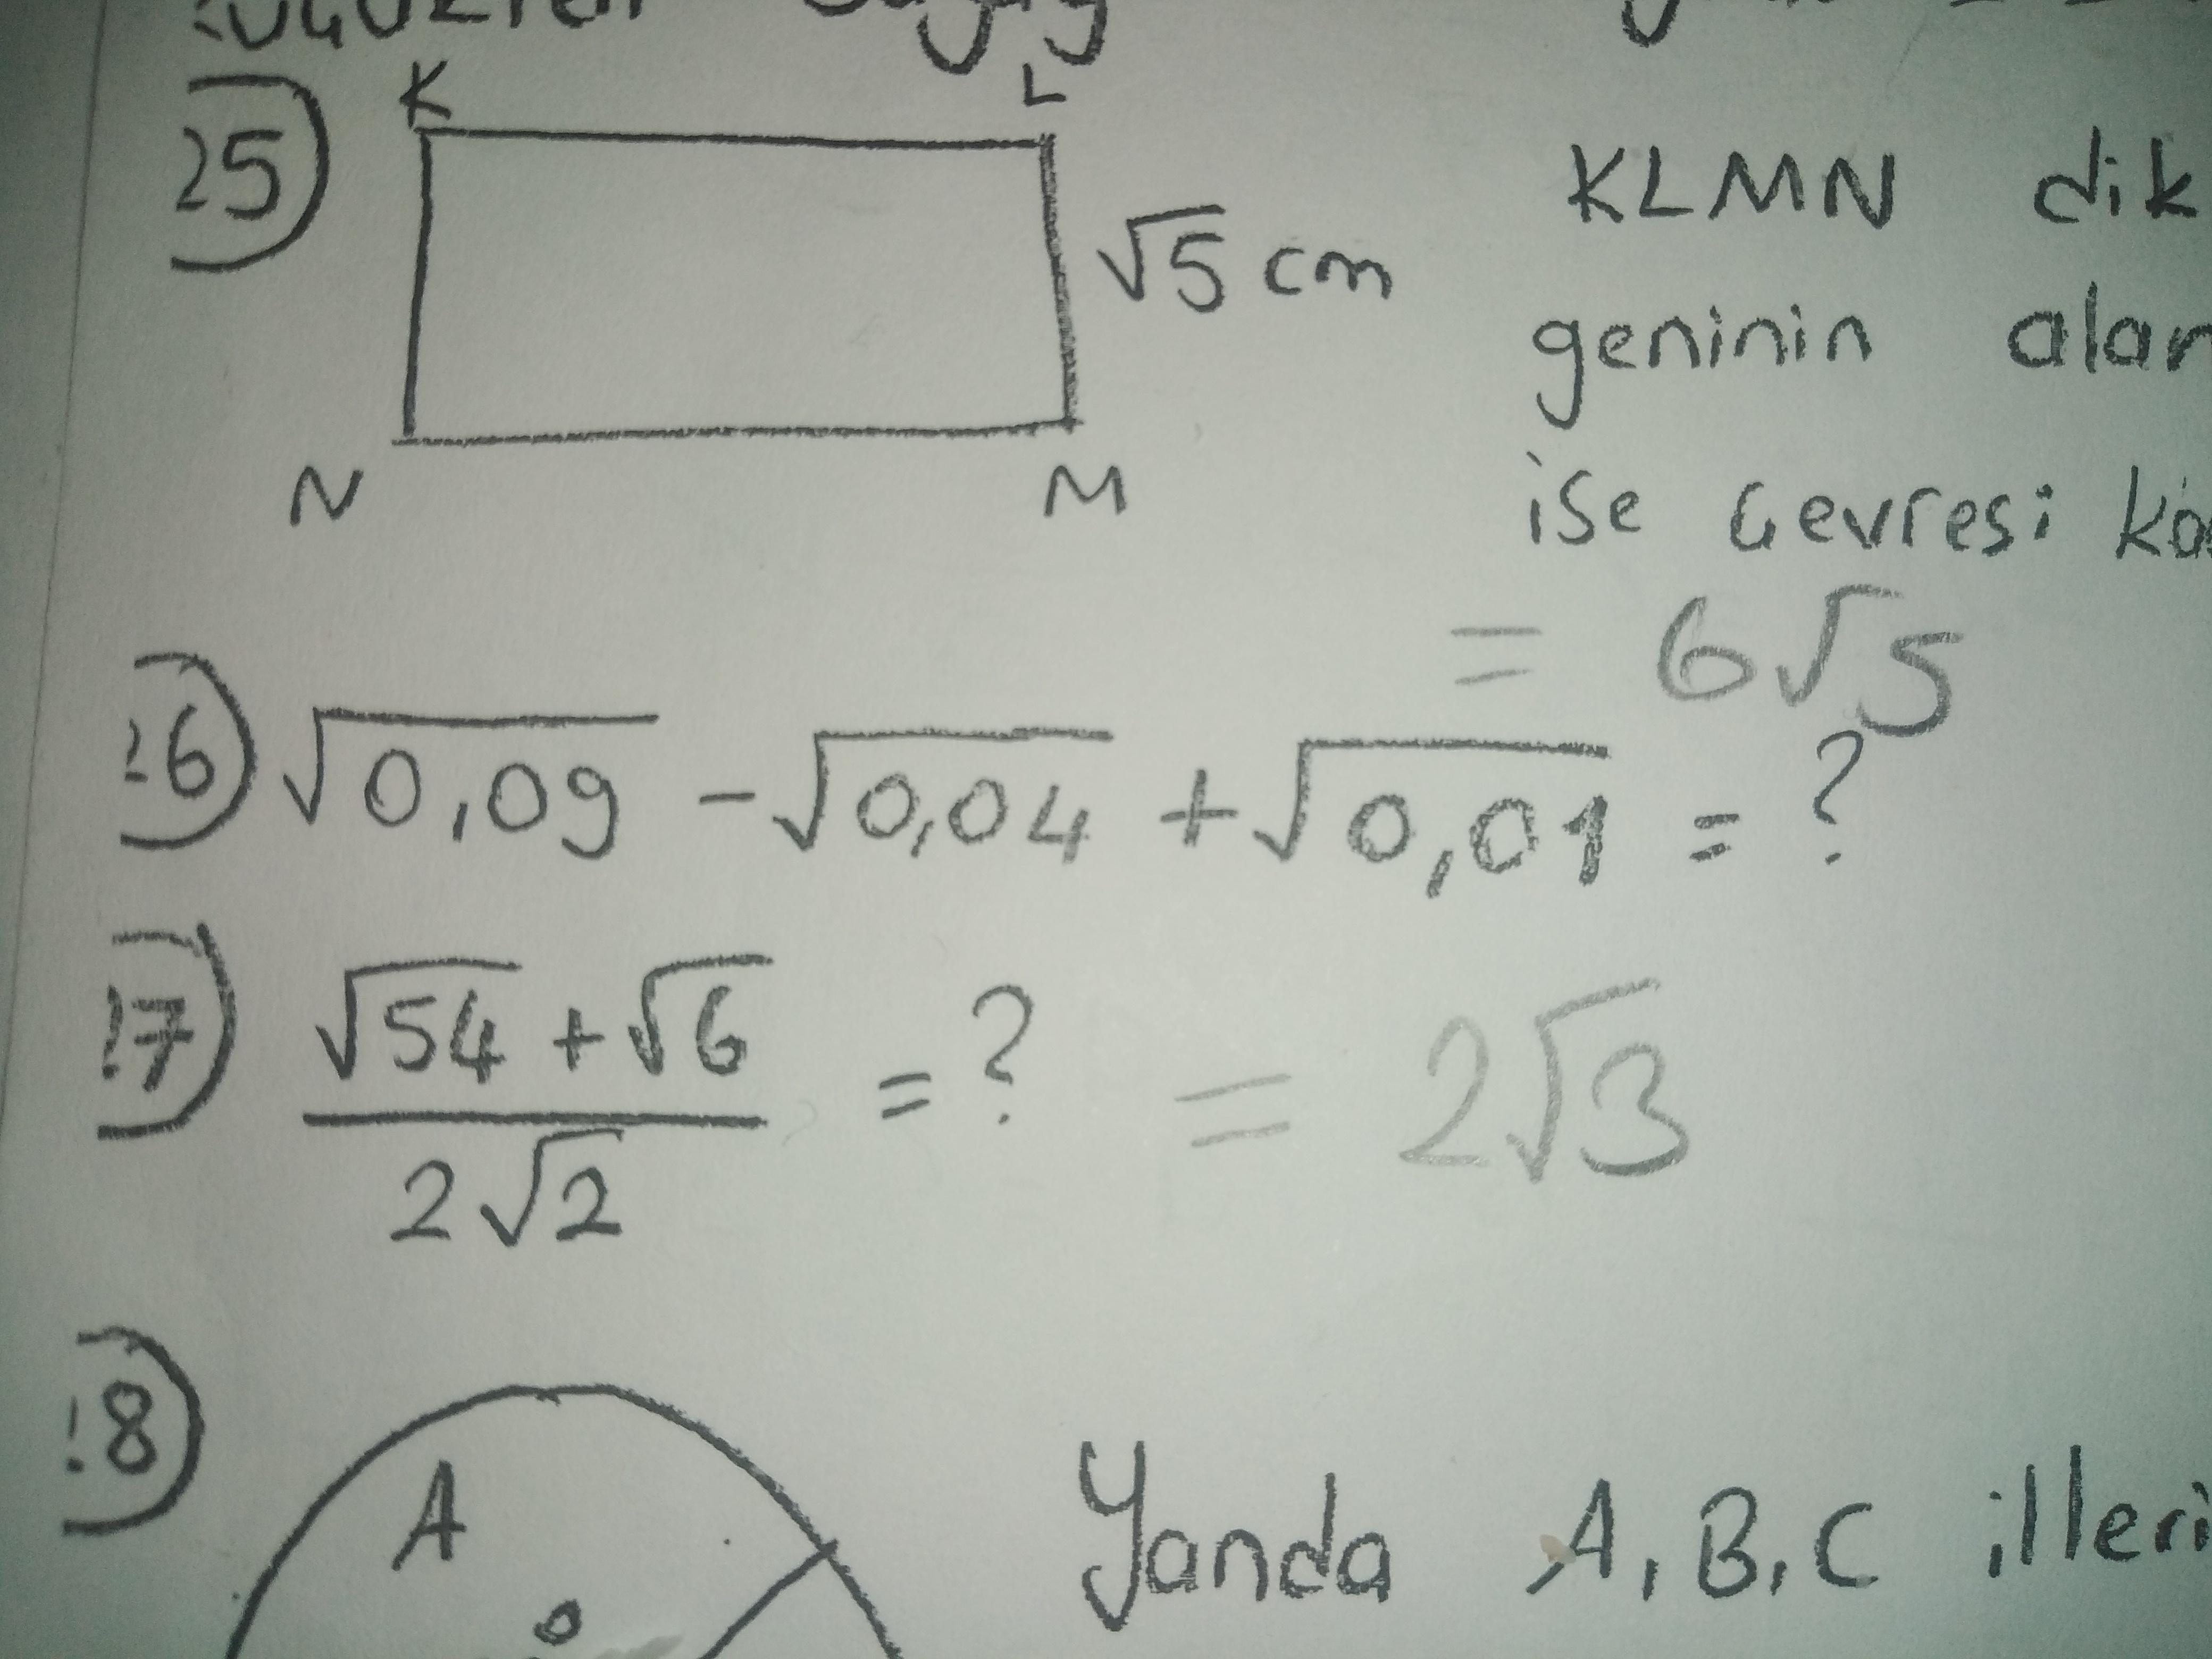 25) K L
√5 cm
N M
KLMN dik
geninin alan
ise çevresi
= 6√5
26) √0,09 - √0,04 + √0,01 = ?
27) (√54 + √6) / (2√2) = ? = 2√3
28) A
Yanda A, B, C illeri